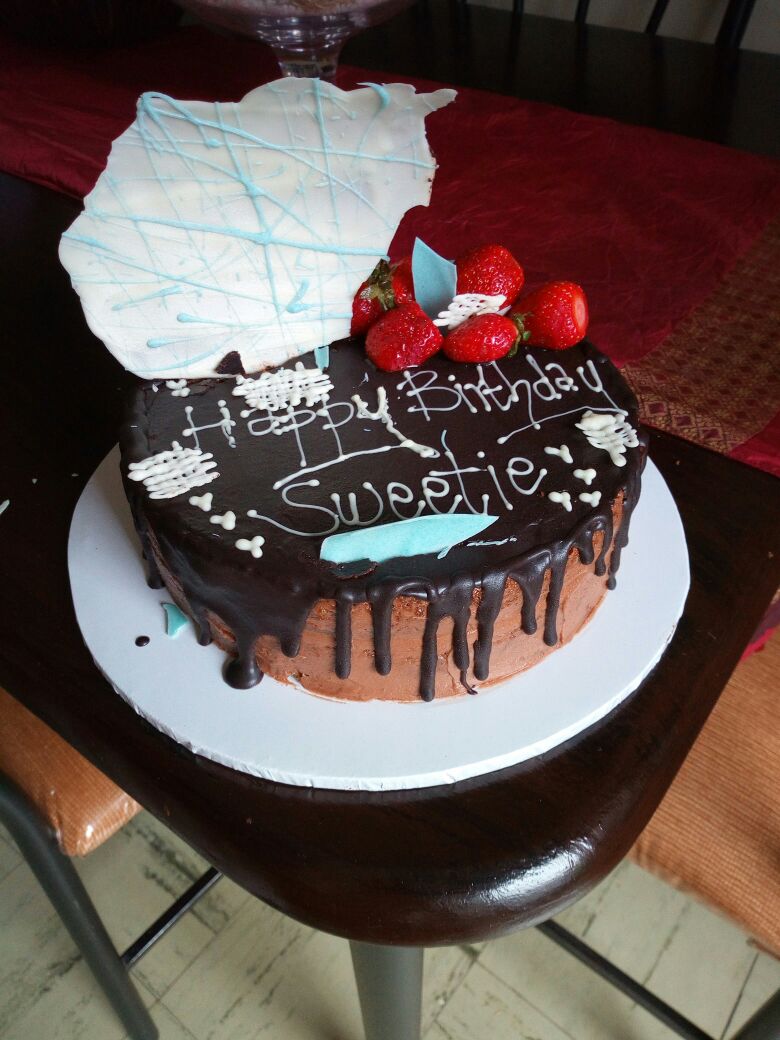 Happy Birthday
Sweetie